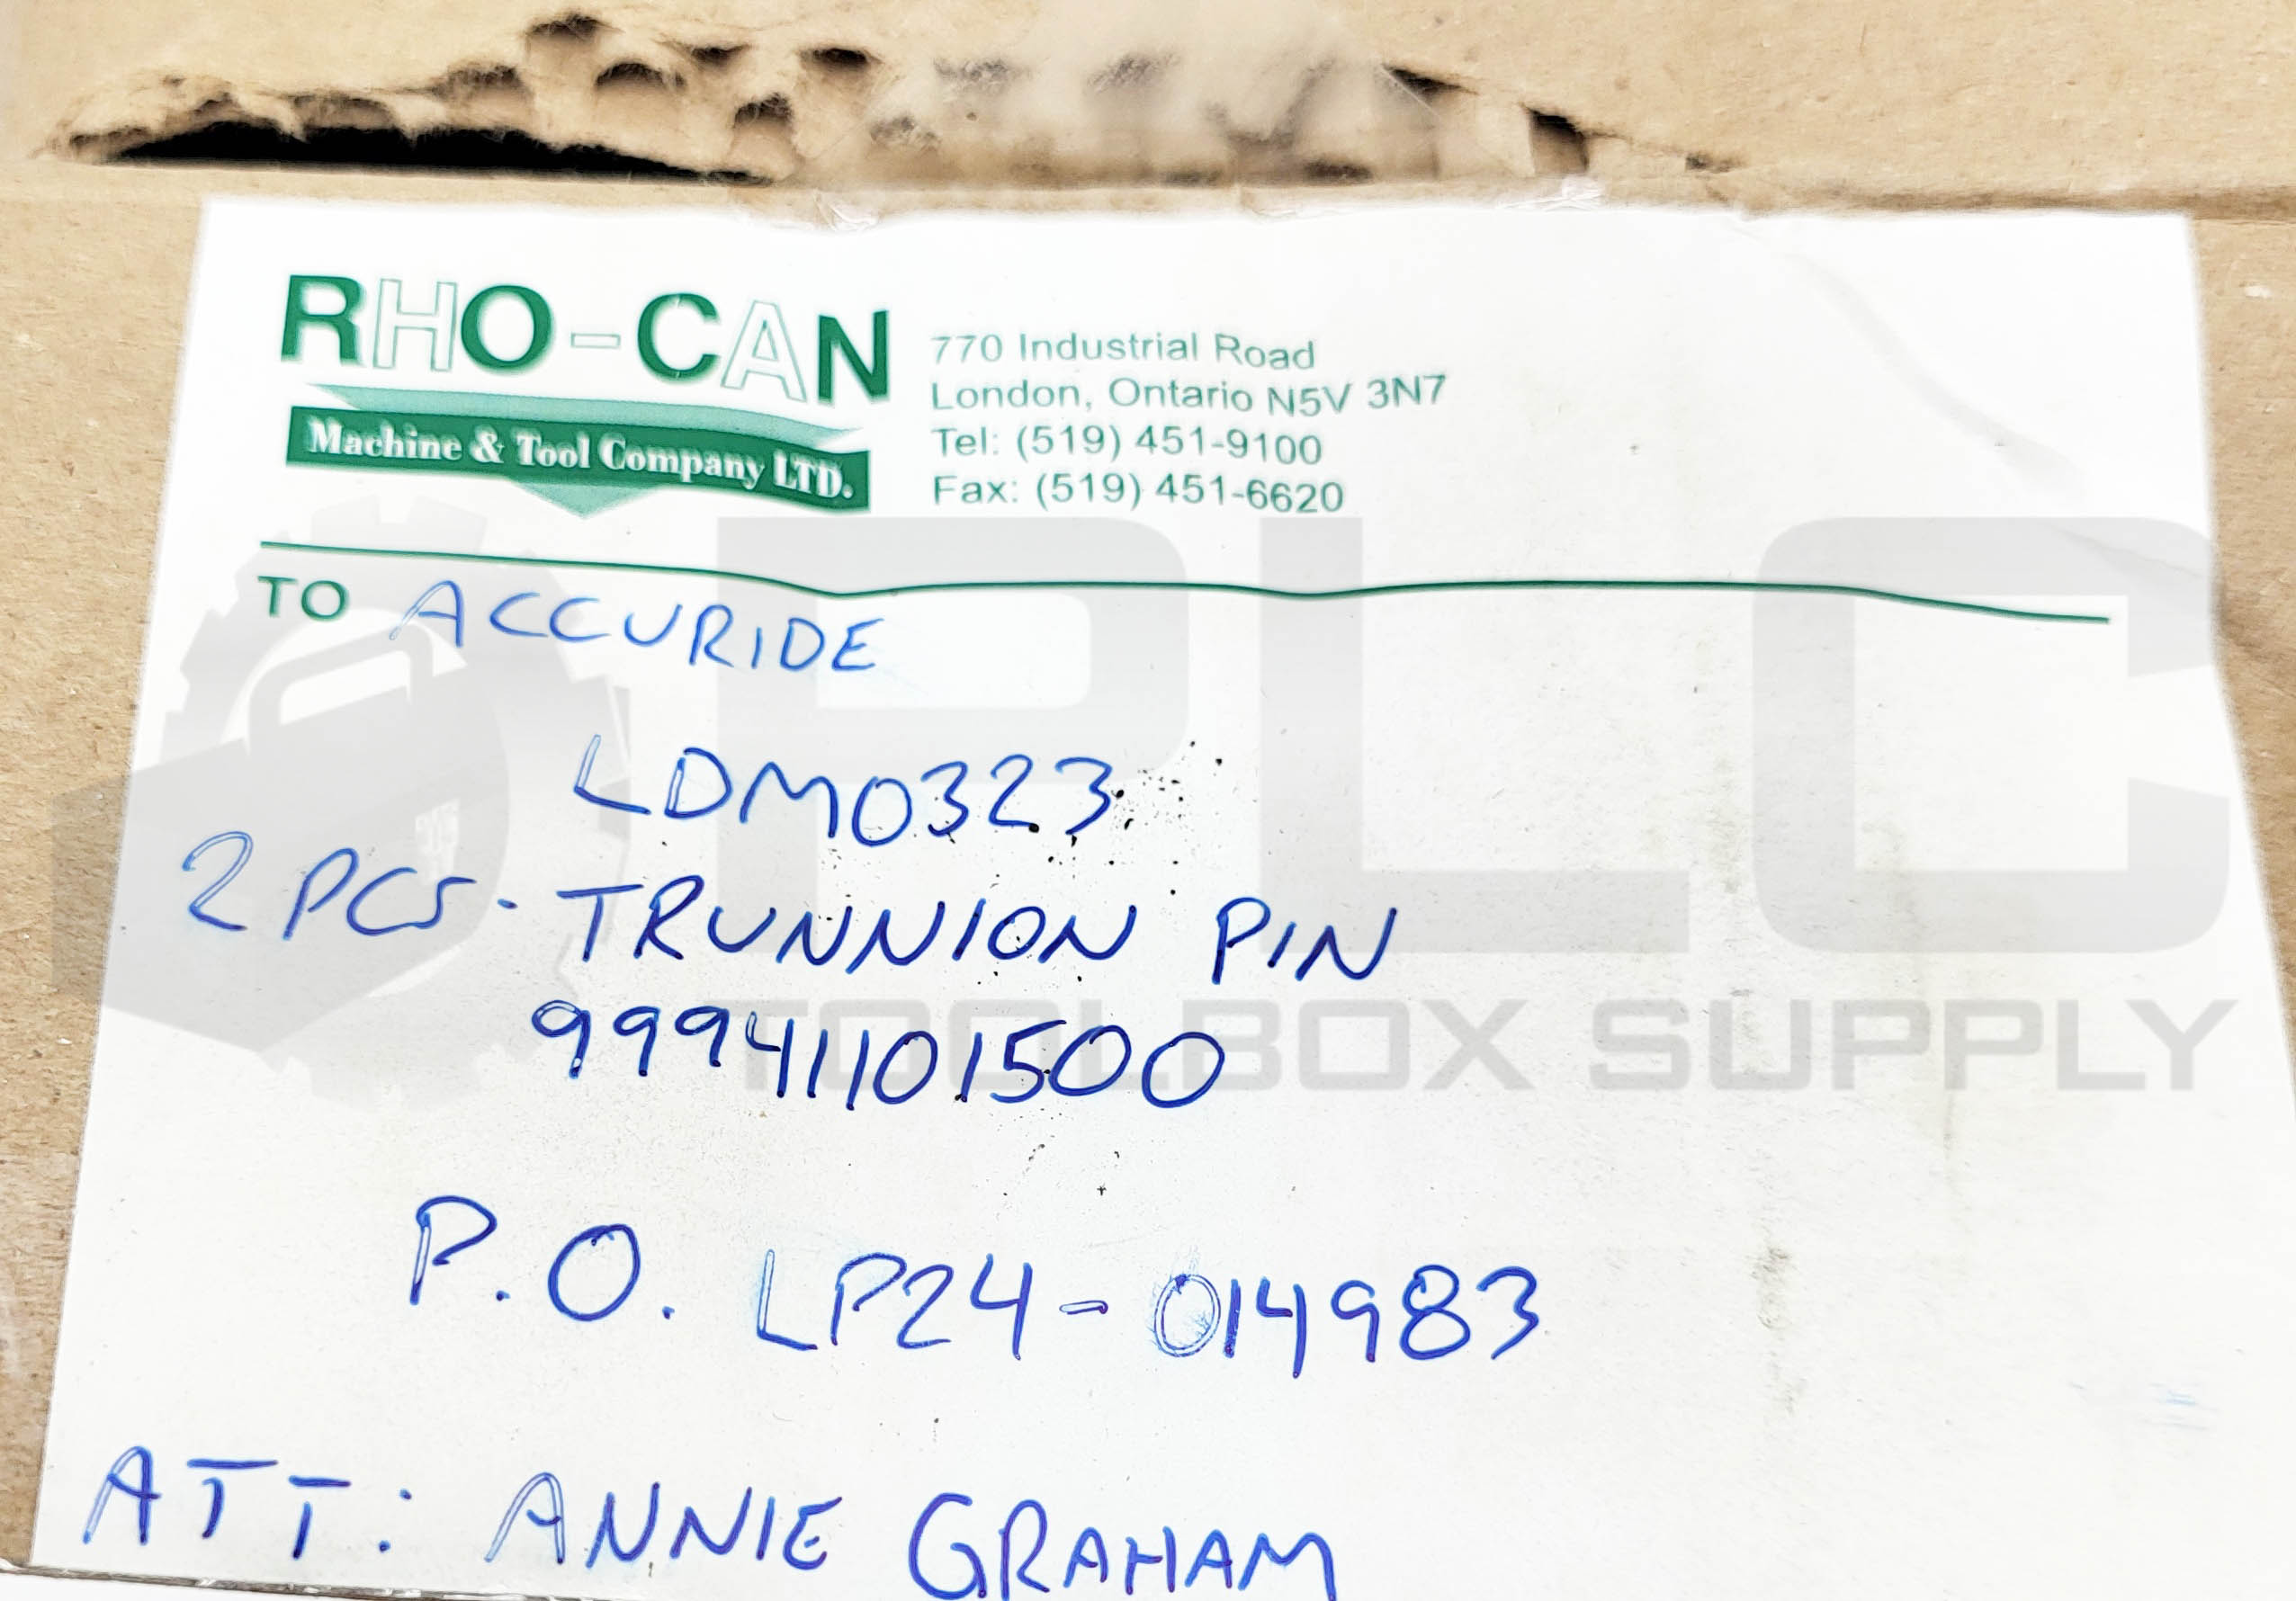 RHO-CAN
Machine & Tool Company LTD.
770 Industrial Road
London, Ontario N5V 3N7
Tel: (519) 451-9100
Fax: (519) 451-6620
TO ACCURIDE
LDM0323
2 PCS. TRUNNION PIN
99941101500
P.O. LP24-014983
ATT: ANNIE GRAHAM
PLC
TOOLBOX SUPPLY